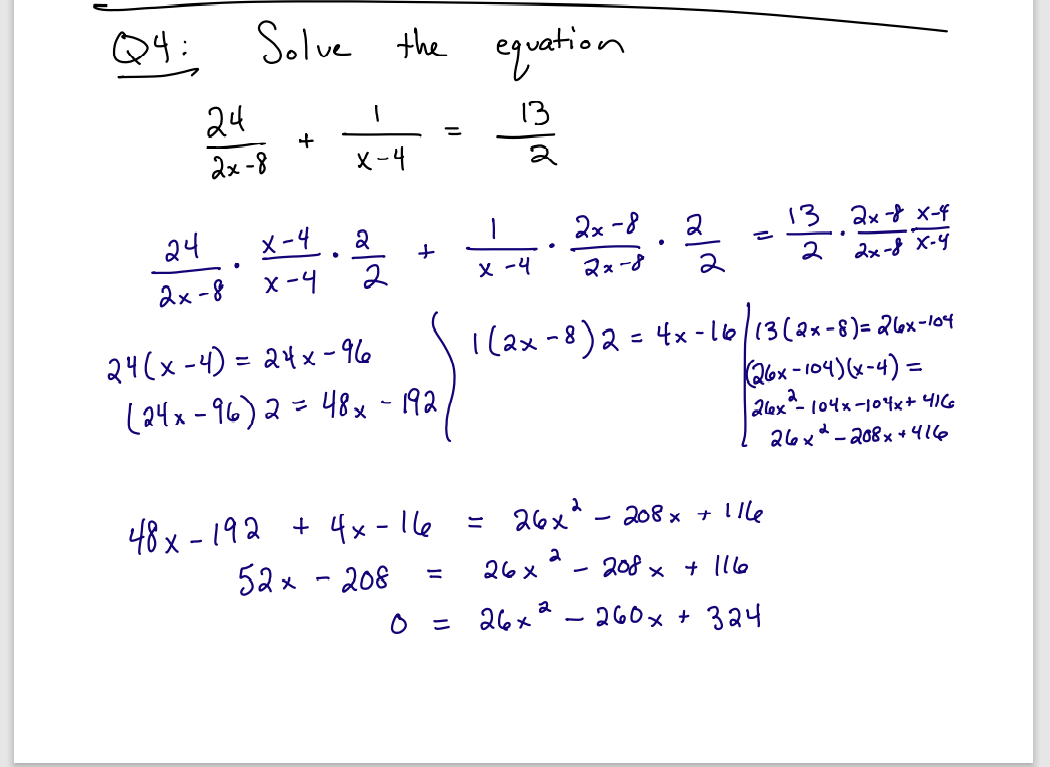 Q4: Solve the equation
24/(2x-8) + 1/(x-4) = 13/2
24/(2x-8) · (x-4)/(x-4) · 2/2 + 1/(x-4) · (2x-8)/(2x-8) · 2/2 = 13/2 · (2x-8)/(2x-8) · (x-4)/(x-4)
24(x-4) = 24x-96
(24x-96)2 = 48x - 192
1(2x-8)2 = 4x-16
13(2x-8)= 26x-104
(26x-104)(x-4) =
26x²-104x-104x+416
26x²-208x+416
48x-192 + 4x-16 = 26x² - 208x + 116
52x - 208 = 26x² - 208x + 116
0 = 26x² - 260x + 324